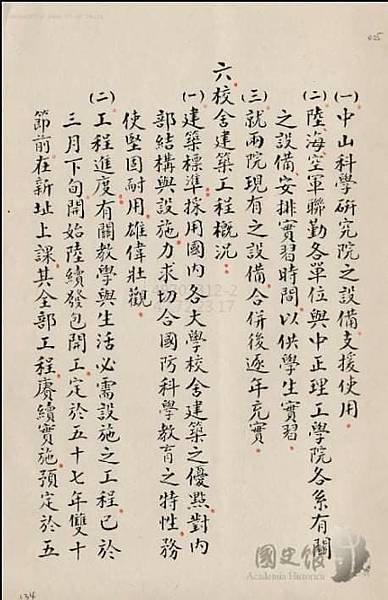 (一)中山科學研究院之設備支援使用。
(二)陸海空軍聯勤各單位與中正理工學院各系有關
之設備、安排實習時間以供學生實習。
(三)就兩院現有之設備合併後逐年充實。
六校舍建築工程概況:
(一)建築標準採用國內各大學校舍建築之優點對內
部結構與設施力求切合國防科學教育之特性務
使堅固耐用雄偉壯觀。
(二)工程進度有關教學與生活必需設施之工程已於
三月下旬開始陸續發包開工定於五十七年雙十
節前在新址上課其全部工程賡續實施預定於五
025
134
國史館
Academia Historica